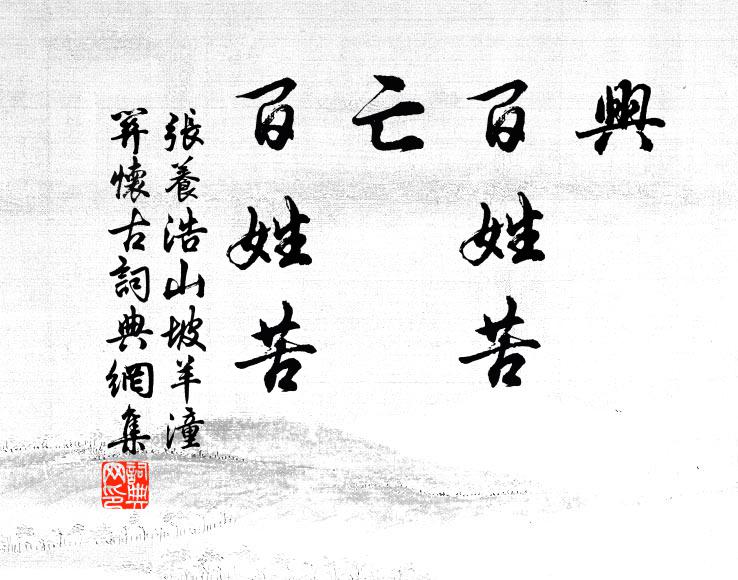 興
百姓苦
亡
百姓苦
張養浩山坡羊潼
关懷古詞典網集
詞典
网印